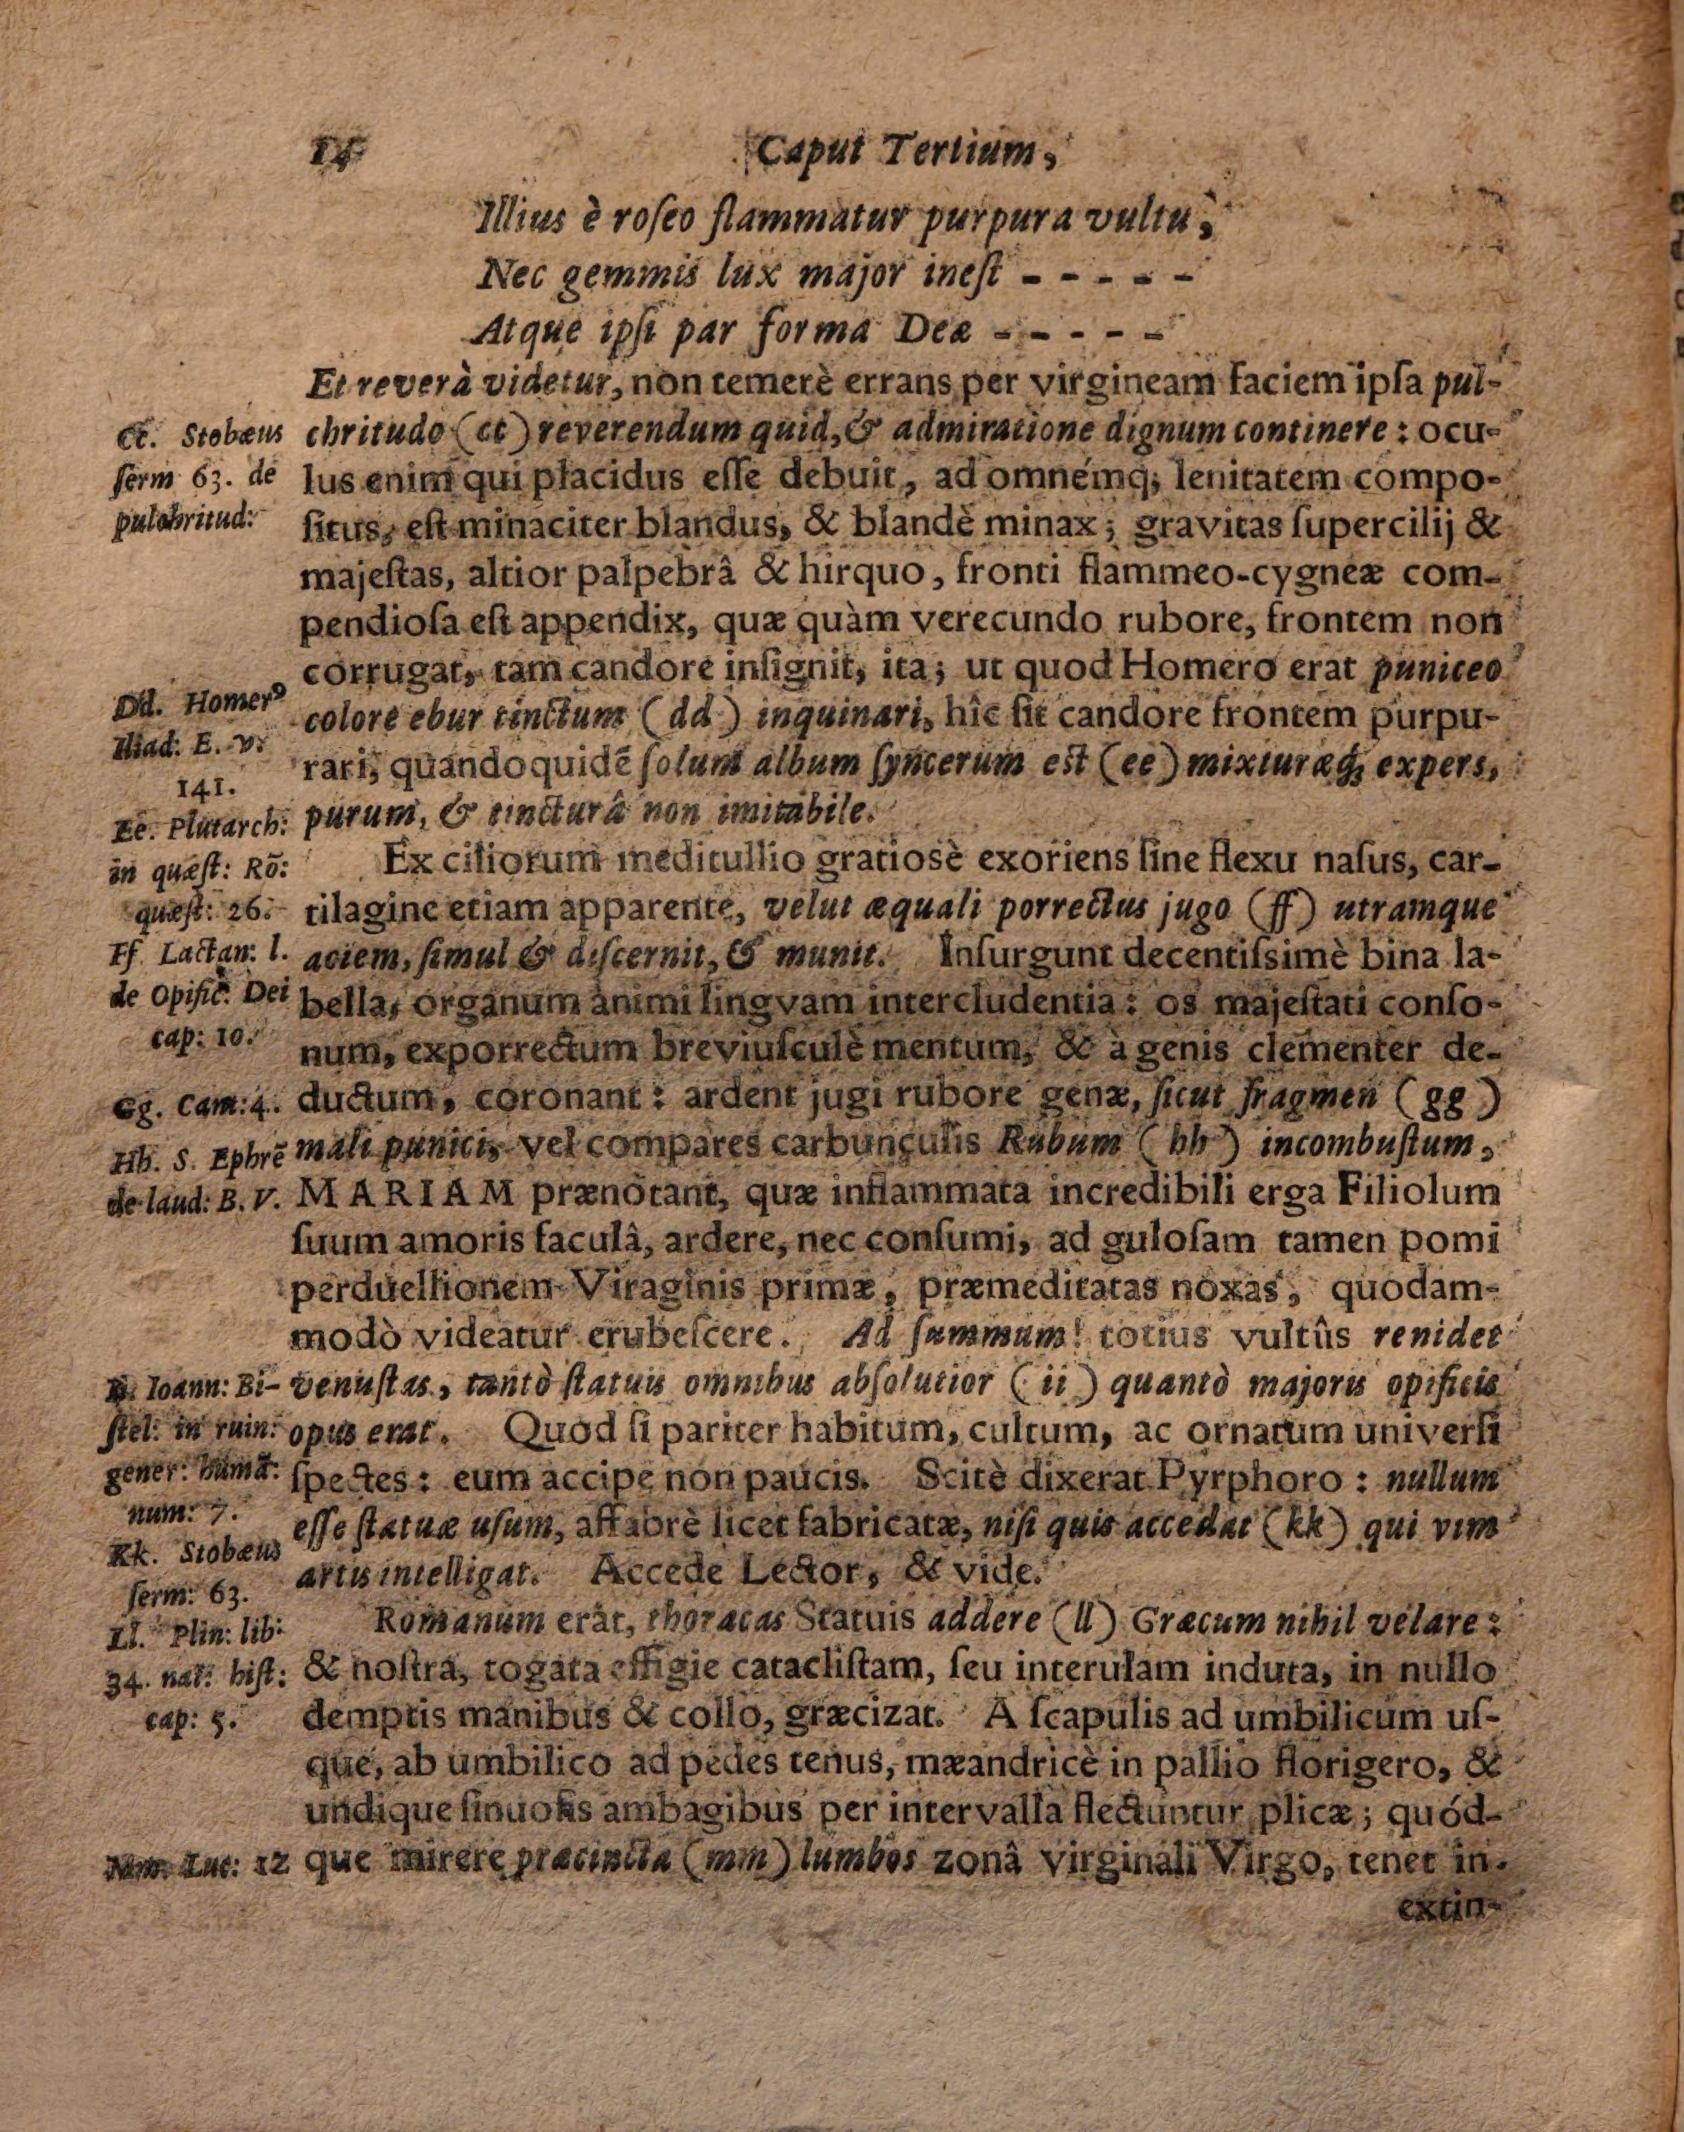 14 Caput Tertium,
Illius è roſeo flammatur purpura vultu,
Nec gemmis lux major ineſt - - - - -
Atque ipſi par forma Deæ - - - - -
Et reverà videtur, non temerè errans per virgineam faciem ipſa pul-
chritudo (cc) reverendum quid, & admiratione dignum continere: ocu-
lus enim qui placidus eſſe debuit, ad omnémq; lenitatem compo-
ſitus, eſt minaciter blandus, & blandè minax; gravitas ſupercilij &
majeſtas, altior palpebrâ & hirquo, fronti flammeo-cygneæ com-
pendioſa eſt appendix, quæ quàm verecundo rubore, frontem non
corrugat, tam candore inſignit, ita; ut quod Homero erat puniceo
colore ebur tinctum (dd) inquinari, hîc ſit candore frontem purpu-
rari, quandoquidẽ ſolum album ſyncerum eſt (ee) mixturæq; expers,
purum, & tincturâ non imitabile.
Ex ciliorum meditullio gratiosè exoriens ſine flexu naſus, car-
tilagine etiam apparente, velut æquali porrectus jugo (ff) utramque
aciem, ſimul & diſcernit, & munit. Inſurgunt decentiſsimè bina la-
bella, organum animi lingvam intercludentia: os majeſtati conſo-
num, exporrectum breviuſculè mentum, & à genis clementer de-
ductum, coronant: ardent jugi rubore genæ, ſicut fragmen (gg)
mali punici, vel compares carbunculis Rubum (hh) incombuſtum,
MARIAM prænotant, quæ inflammata incredibili erga Filiolum
ſuum amoris faculâ, ardere, nec conſumi, ad guloſam tamen pomi
perduellionem Viraginis primæ, præmeditatas noxas, quodam-
modò videatur erubeſcere. Ad ſummum! totius vultûs renidet
venuſtas, tantò ſtatuis omnibus abſolutior (ii) quantò majoris opificis
opus erat. Quod ſi pariter habitum, cultum, ac ornatum univerſi
ſpectes: eum accipe non paucis. Scitè dixerat Pyrphoro: nullum
eſſe ſtatuæ uſum, affabrè licet fabricatæ, niſi quis accedat (kk) qui vim
artis intelligat. Accede Lector, & vide.
Romanum erat, thoracas Statuis addere (ll) Græcum nihil velare:
& noſtra, togata effigie catacliſtam, ſeu interulam induta, in nullo
demptis manibus & collo, græcizat. A ſcapulis ad umbilicum uſ-
que, ab umbilico ad pedes tenus, mæandricè in pallio florigero, &
undique ſinuoſis ambagibus per intervalla flectuntur plicæ; quód-
que mirere præcincta (mm) lumbos zonâ virginali Virgo, tenet in-
extin-
Cc. Stobæus
ſerm 63. de
pulchritud:
Dd. Homerꝰ
Iliad: E. v:
141.
Ee. Plutarch:
in quæſt: Rõ:
quæſt: 26.
Ff Lactan: l.
de Opific: Dei
cap: 10.
Gg. Cam: 4.
Hh. S. Ephrẽ
de laud: B. V.
Ioann: Bi-
ſtel: in ruin:
gener: humã:
num: 7.
Kk. Stobæus
ſerm: 63.
Ll. Plin: lib:
34. nat: hiſt:
cap: 5.
Mm. Luc: 12